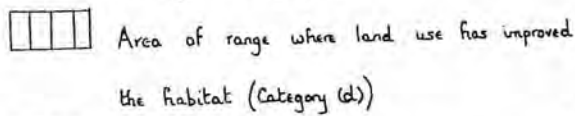 Area of range where land use has improved
the habitat (Category (d))